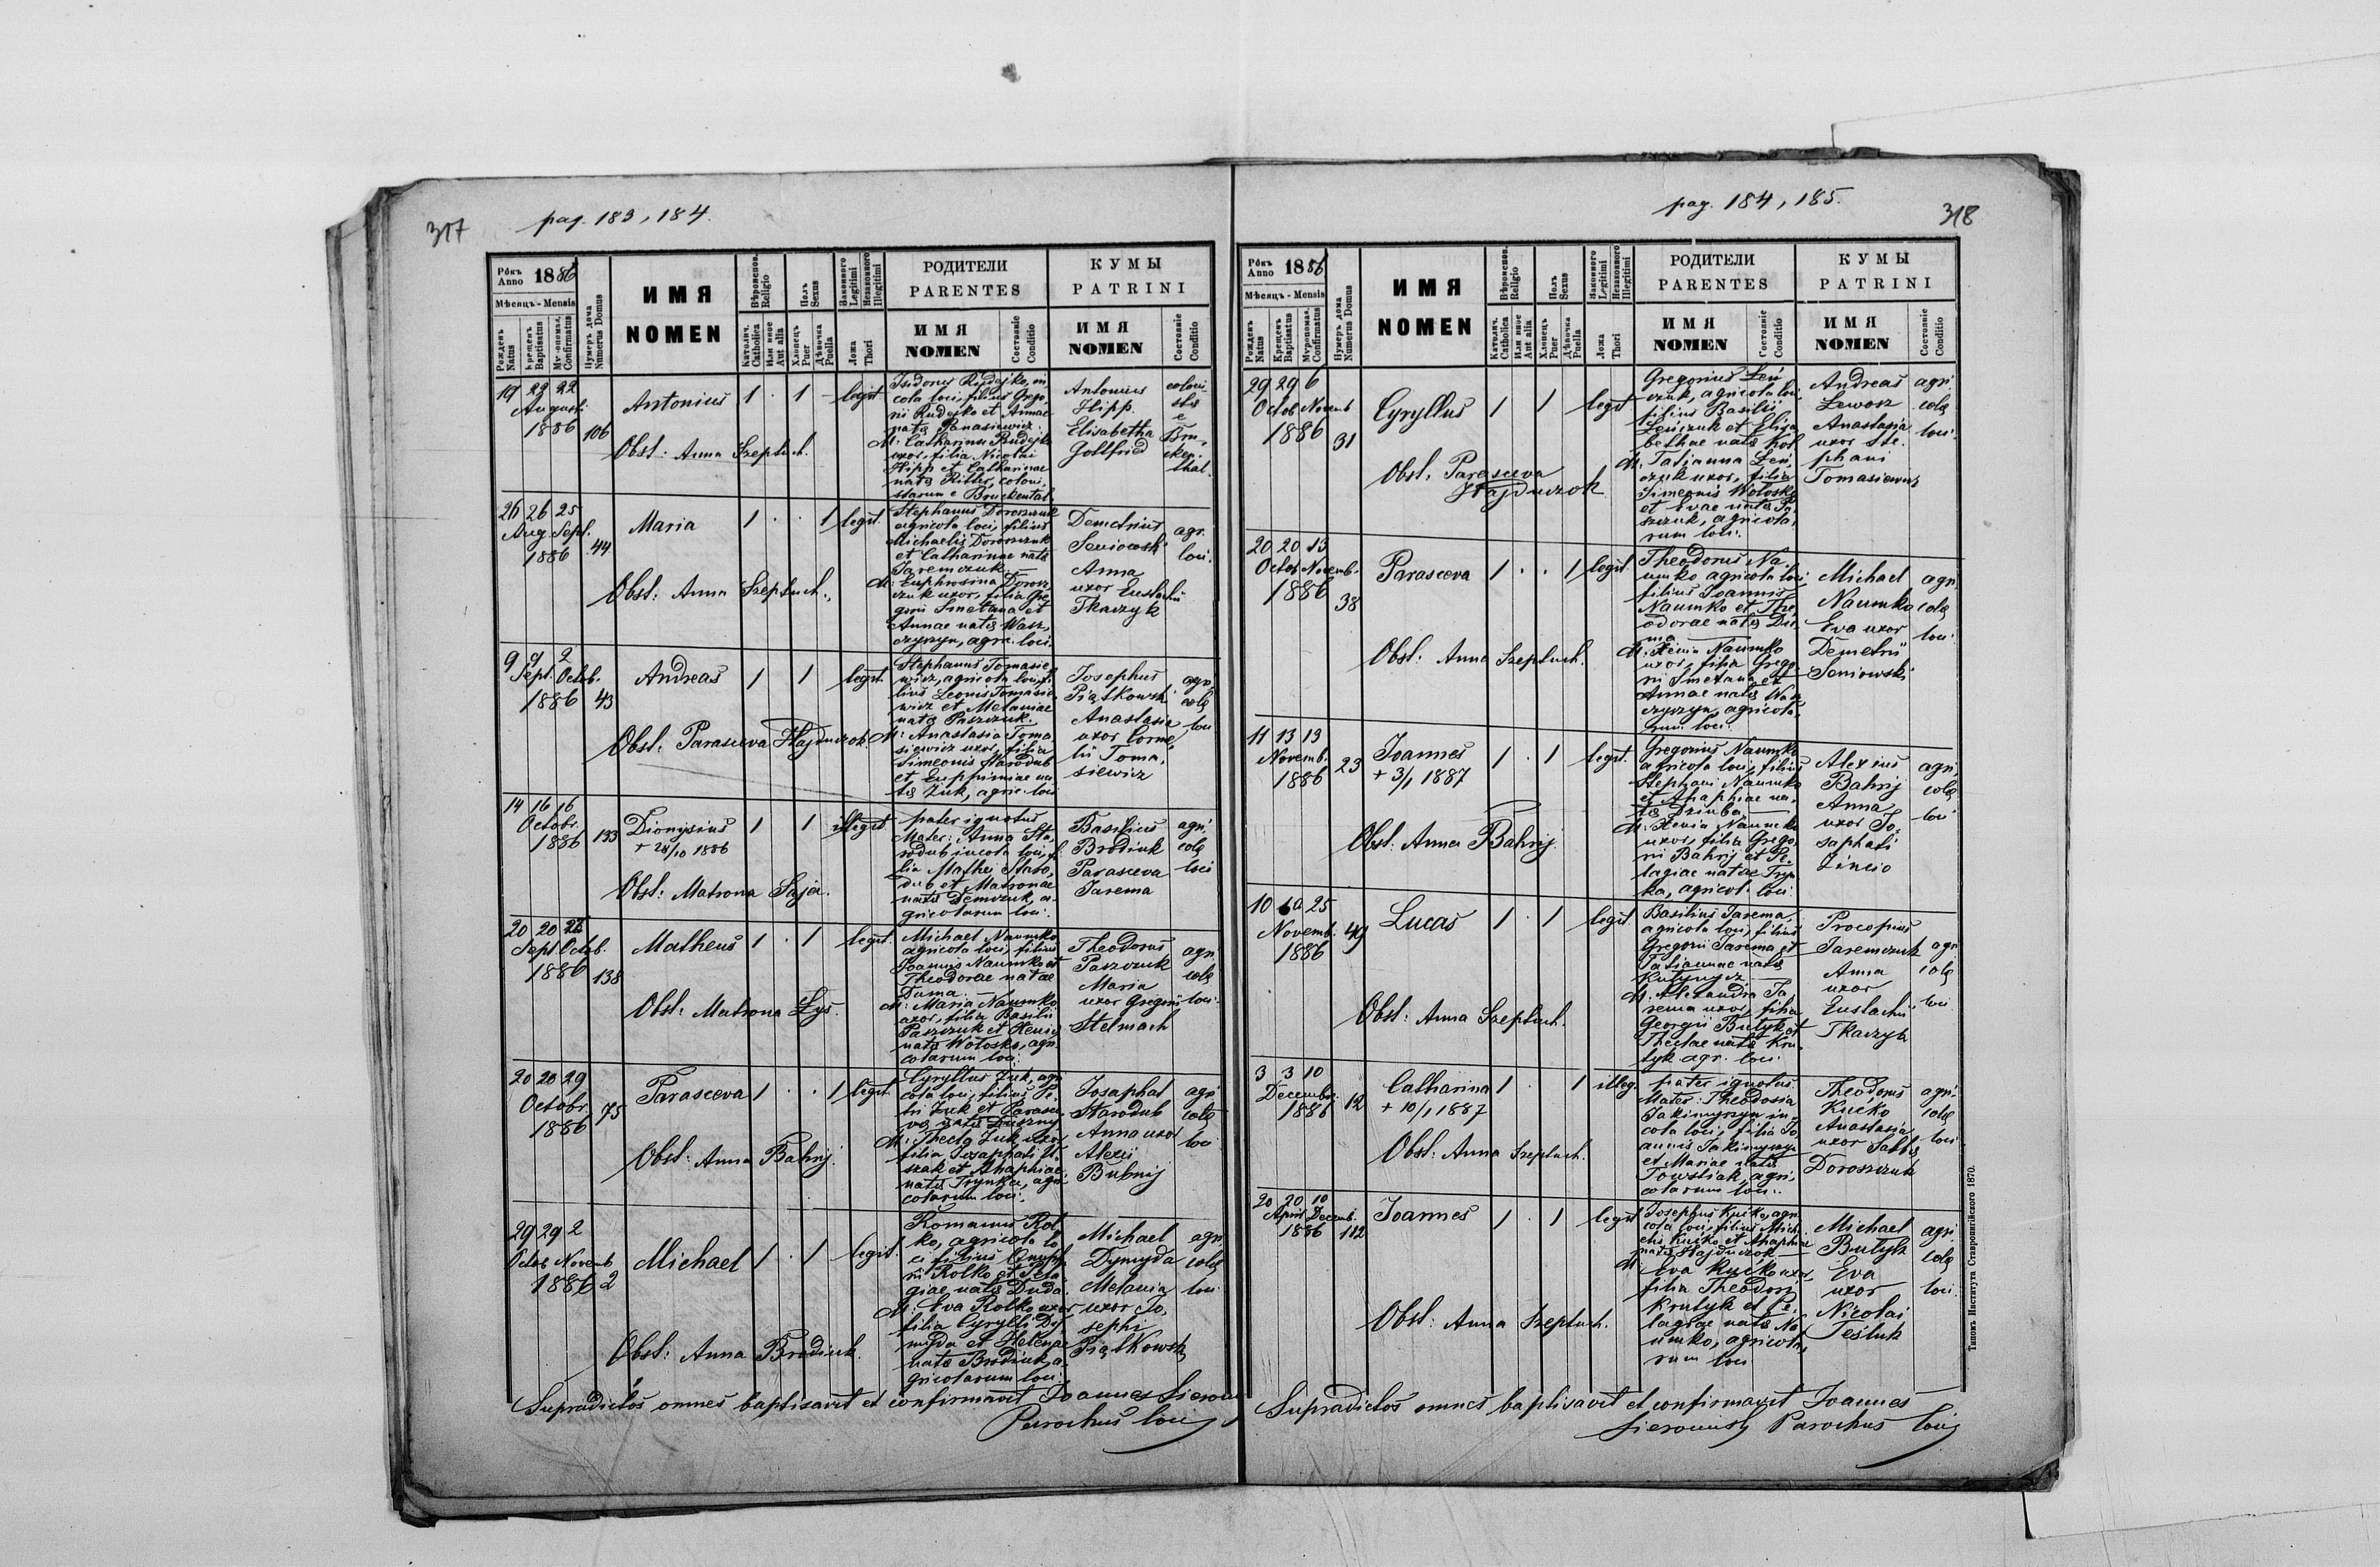 317
pag. 183, 184.
Рôкъ Anno 1886
Мѣсяцъ - Mensis
Рожденъ Natus
Крещенъ Baptisatus
Confirmatus
Нумеръ дома Numerus Domus
ИМЯ
NOMEN
Вѣроисповѣд. Religio
Католич. Catholica
Или иное Aut alia
Полъ Sexus
Хлопецъ Puer
Дѣвочка Puella
Законного Legitimi
Незаконного Illegitimi
Ложа Thori
РОДИТЕЛИ
PARENTES
ИМЯ
NOMEN
Состояніе Conditio
КУМЫ
PATRINI
ИМЯ
NOMEN
Состояніе Conditio
19 29 22
Augusti
1886
106
Antonius
1 1 legit.
Obst: Anna Szeptuch.
Isidorus Rudejko, in
cola loci, filius Grego
rii Rudejko et Annae
natæ Panasiewicz.
M: Catharina Rudejko
uxor, filia Nicolai
Hipp et Catharinae
natæ Ritter, coloni,
starum e Bruckental.
Antonius
Hipp.
Elisabetha
Gottfried
coloni
stæ
e
Bru,
cken
thal.
26 26 25
Aug. Sept.
1886
44
Maria
1 1 legit.
Obst: Anna Szeptuch.
Stephanus Doroszczuk
agricola loci, filius
Michaelis Doroszczuk
et Catharinae natæ
Jaremczuk.
M: Euphrosina Dorosz
czuk uxor, filia Gre
gorii Smetana et
Annae natæ Wasz,
czyszyn, agric. loci
Demetrius
Seniowski
Anna
uxor Eustachii
Tkaczyk
agr.
loci.
9 9 2
Sept. Octob.
1886
43
Andreas
1 1 legit.
Obst: Parasceva Hajduczok
Stephanus Tomasie
wicz, agricola loci, fi
lius Leonis Tomasie
wicz et Melaniae
natæ Paszczuk.
M: Anastasia Toma
siewicz uxor, filia
Simeonis Starodub
et Euphimiae na
tæ Żuk, agric. loci
Josephus
Piątkowski
Anastasia
uxor Corne,
lii Toma,
siewicz
agri,
colæ
loci
14 16 16
Octobr.
1886
133
Dionysius
+ 24/10 1886
1 1 illegit.
Obst: Matrona Saja.
pater ignotus
Mater: Anna Sta,
rodub incola loci, fi
lia Mathei Staro,
dub et Matronae
natæ Demczuk, a
gricolarum loci.
Basilius
Brodiuk
Parasceva
Jarema
agri,
colæ
loci
20 20 26
Sept. Octob.
1886
138
Matheus
1 1 legit.
Obst: Matrona Łys.
Michael Naumko
agricola loci, filius
Joannis Naumko et
Theodorae natae
Duma.
M: Maria Naumko
uxor, filia Basilii
Paszczuk et Xeniæ
natæ Wołosko, agri
colarum loci.
Theodorus
Paszczuk
Maria
uxor Gregorii
Stelmach
agri,
colæ
loci.
20 20 29
Octobr.
1886
75
Parasceva
1 1 legit.
Obst: Anna Bahrij.
Cyryllus Żuk, agri
cola loci, filius Pe,
tri Żuk et Parasce
væ natæ Duszny.
M: Thecla Żuk, uxor
filia Josaphati
et Ahaphiae
natæ Trynka, agri
colarum loci.
Josaphat
Starodub
Anna uxor
Alexii
Bubnij
agri
colæ
loci
29 29 2
Octob. Novemb
1886
2
Michael
1 1 legit.
Obst: Anna Brodiuk.
Romanus Rol
ko, agricola lo
ci filius Onuph
rii Rolko et Pela
giae natæ Duda.
M: Eva Rolko uxor
filia Cyrylli Dy
myda et Helenae
natæ Brodiuk, a
gricolarum loci.
Michael
Dymyda
Melania
uxor Jo,
sephi
Piątkowski
agri
colæ
loci
Supradictos omnes baptisavit et confirmavit Joannes
Parochus loci
pag. 184, 185.
318
Рôкъ Anno 1886
Мѣсяцъ - Mensis
Рожденъ Natus
Крещенъ Baptisatus
Мѵропомаз. Confirmatus
Нумеръ дома Numerus Domus
ИМЯ
NOMEN
Вѣроисповѣд. Religio
Католич. Catholica
Или иное Aut alia
Полъ Sexus
Хлопецъ Puer
Дѣвочка Puella
Законного Legitimi
Незаконного Illegitimi
Ложа Thori
РОДИТЕЛИ
PARENTES
ИМЯ
NOMEN
Состояніе Conditio
КУМЫ
PATRINI
ИМЯ
NOMEN
Состояніе Conditio
29 29 6
Octob Novemb
1886
31
Cyryllus
1 1 legit
Obst. Parasceva
Hajduczok
Gregorius Łeń
czuk, agricola loci,
filius Basilii
Leńczuk et Elisa
bethae natæ Kot
M: Tatianna Łeń,
czuk uxor, filia
Simeonis Wołosko
et Evae natæ Pa
szczuk, agricola,
rum loci.
Andreas
Lewosz
Anastasia
uxor Ste.
phani
Tomasiewicz
agri
colæ
loci.
20 20 13
Octob Novemb.
1886
38
Parasceva
1 1 legit.
Obst: Anna Szeptuch.
Theodorus Na
umko agricola loci,
filius Joannis
Naumko et The,
odorae natæ Du
ma
M: Xenia Naumko
uxor, filia Grego
rii Smetana et
Annae natæ Wasz
czyszyn, agricola,
rum loci.
Michael
Naumko
Eva uxor
Demetrii
Seniowski
agri,
colæ
loci.
11 13 13
Novemb.
1886
23
Joannes
+ 3/1 1887
1 1 legit.
Obst: Anna Bahrij.
Gregorius Naumko
agricola loci, filius
Stephani Naumko
et Ahaphiae na,
tæ Dziuba.
M: Xenia Naumko
uxor, filia Grego
rii Bahrij et Pe
lagiae natae Tryn
ka, agricol. loci.
Alexius
Bahrij
Anna
uxor Jo,
saphati
Zincio
agri,
colæ
loci
10 10 25
Novemb.
1886
49
Lucas
1 1 legit.
Obst: Anna Szeptuch.
Basilius Jarema,
agricola loci, filius
Gregorii Jarema et
Tatiannae natæ
M: Alexandra Ja
rema uxor, filia
Georgii Butyk et
Theclae natæ Kru
tyk agr. loci.
Procopius
Jaremczuk
Anna
uxor
Eustachii
Tkaczyk
agri
colæ
loci
3 3 10
Decembr.
1886
12
Catharina
+ 10/1 1887
1 1 illeg.
Obst: Anna Szeptuch.
pater ignotus.
Mater: Theodosia
Jakimyszyn in,
cola loci, filia Jo
annis Jakimyszyn
et Mariae natæ
Towstiak, agri,
colarum loci.
Theodorus
Kućko
Anastasia
uxor Sabbæ
Doroszczuk
agri
colæ
loci.
20 20 10
April Decemb.
1886
112
Joannes
1 1 legit
Obst: Anna Szeptuch.
Josephus Kućko, agri
cola loci, filius Micha
elis Kućko et Ahaphiae
natæ Hajduczok
M: Eva Kućko uxor,
filia Theodori
Krutyk et Pe,
lagiae natæ Na
umko, agricola,
rum loci
Michael
Butyk
Eva
uxor
Nicolai
Teśluk
agri
colæ
loci.
Supradictos omnes baptisavit et confirmavit Joannes
Parochus loci
Типомъ Института Ставропигійского 1870.